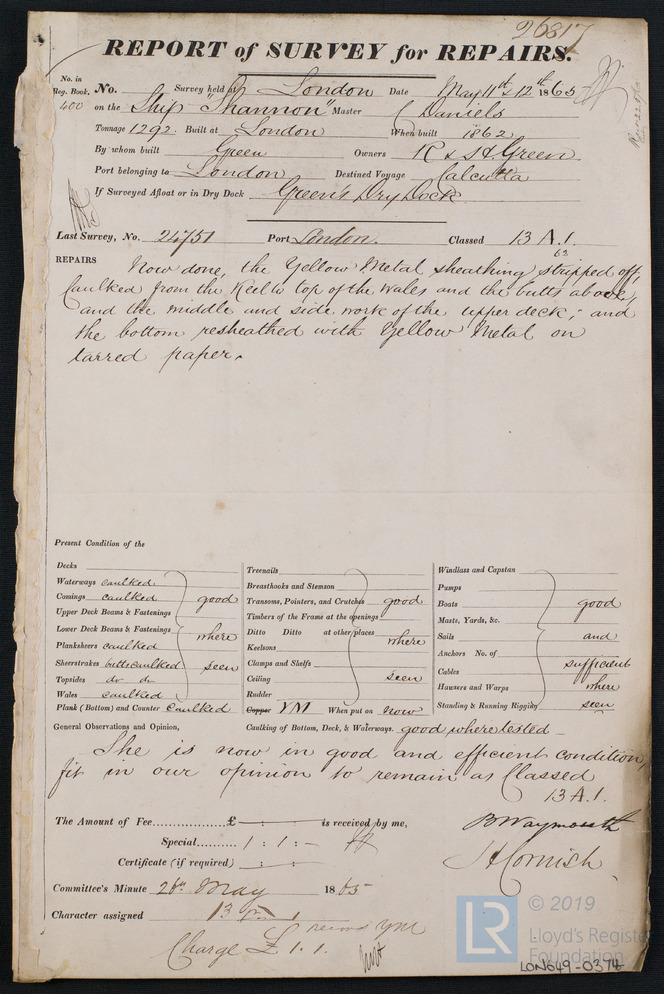 26817
REPORT of SURVEY for REPAIRS.
No. in Reg. Book. No. Survey held at London Date May 11th & 12th 1865
400 on the Ship "Shannon" Master C Daniels
Tonnage 1292 Built at London When built 1862
By whom built Green Owners R & H Green
Port belonging to London Destined Voyage Calcutta
If Surveyed Afloat or in Dry Dock Green's Dry Dock
Last Survey, No. 24751 Port London. Classed 13 A.1.
62
REPAIRS Now done, the Yellow Metal sheathing stripped off,
Caulked from the Keel to top of the Wales and the butts above,
and the middle and side work of the upper deck; and
the bottom resheathed with Yellow Metal on
tarred paper.
Present Condition of the
Decks
Waterways caulked
Comings caulked good
Upper Deck Beams & Fastenings
Lower Deck Beams & Fastenings where
Planksheers caulked
Sheerstrakes butts caulked seen
Topsides do do
Wales caulked
Plank (Bottom) and Counter Caulked
Treenails
Breasthooks and Stemson
Transoms, Pointers, and Crutches good
Timbers of the Frame at the openings
Ditto Ditto at other places where
Keelsons
Clamps and Shelfs
Ceiling seen
Rudder
Copper YM When put on now
Windlass and Capstan
Pumps
Boats good
Masts, Yards, &c.
Sails and
Anchors No. of
Cables sufficient
Hawsers and Warps where
Standing & Running Rigging seen
General Observations and Opinion, Caulking of Bottom, Deck, & Waterways. good where tested
She is now in good and efficient condition,
fit in our opinion to remain as Classed
13 A.1.
The Amount of Fee £ : : is received by me, B Waymouth
Special 1 : 1 : -
Certificate (if required) : : Cornish
Committee's Minute 26th May 1865
Character assigned 13 A 1
YM
Charge £ 1. 1.
LR
© 2019
Lloyd's Register
Foundation
LON649-0374